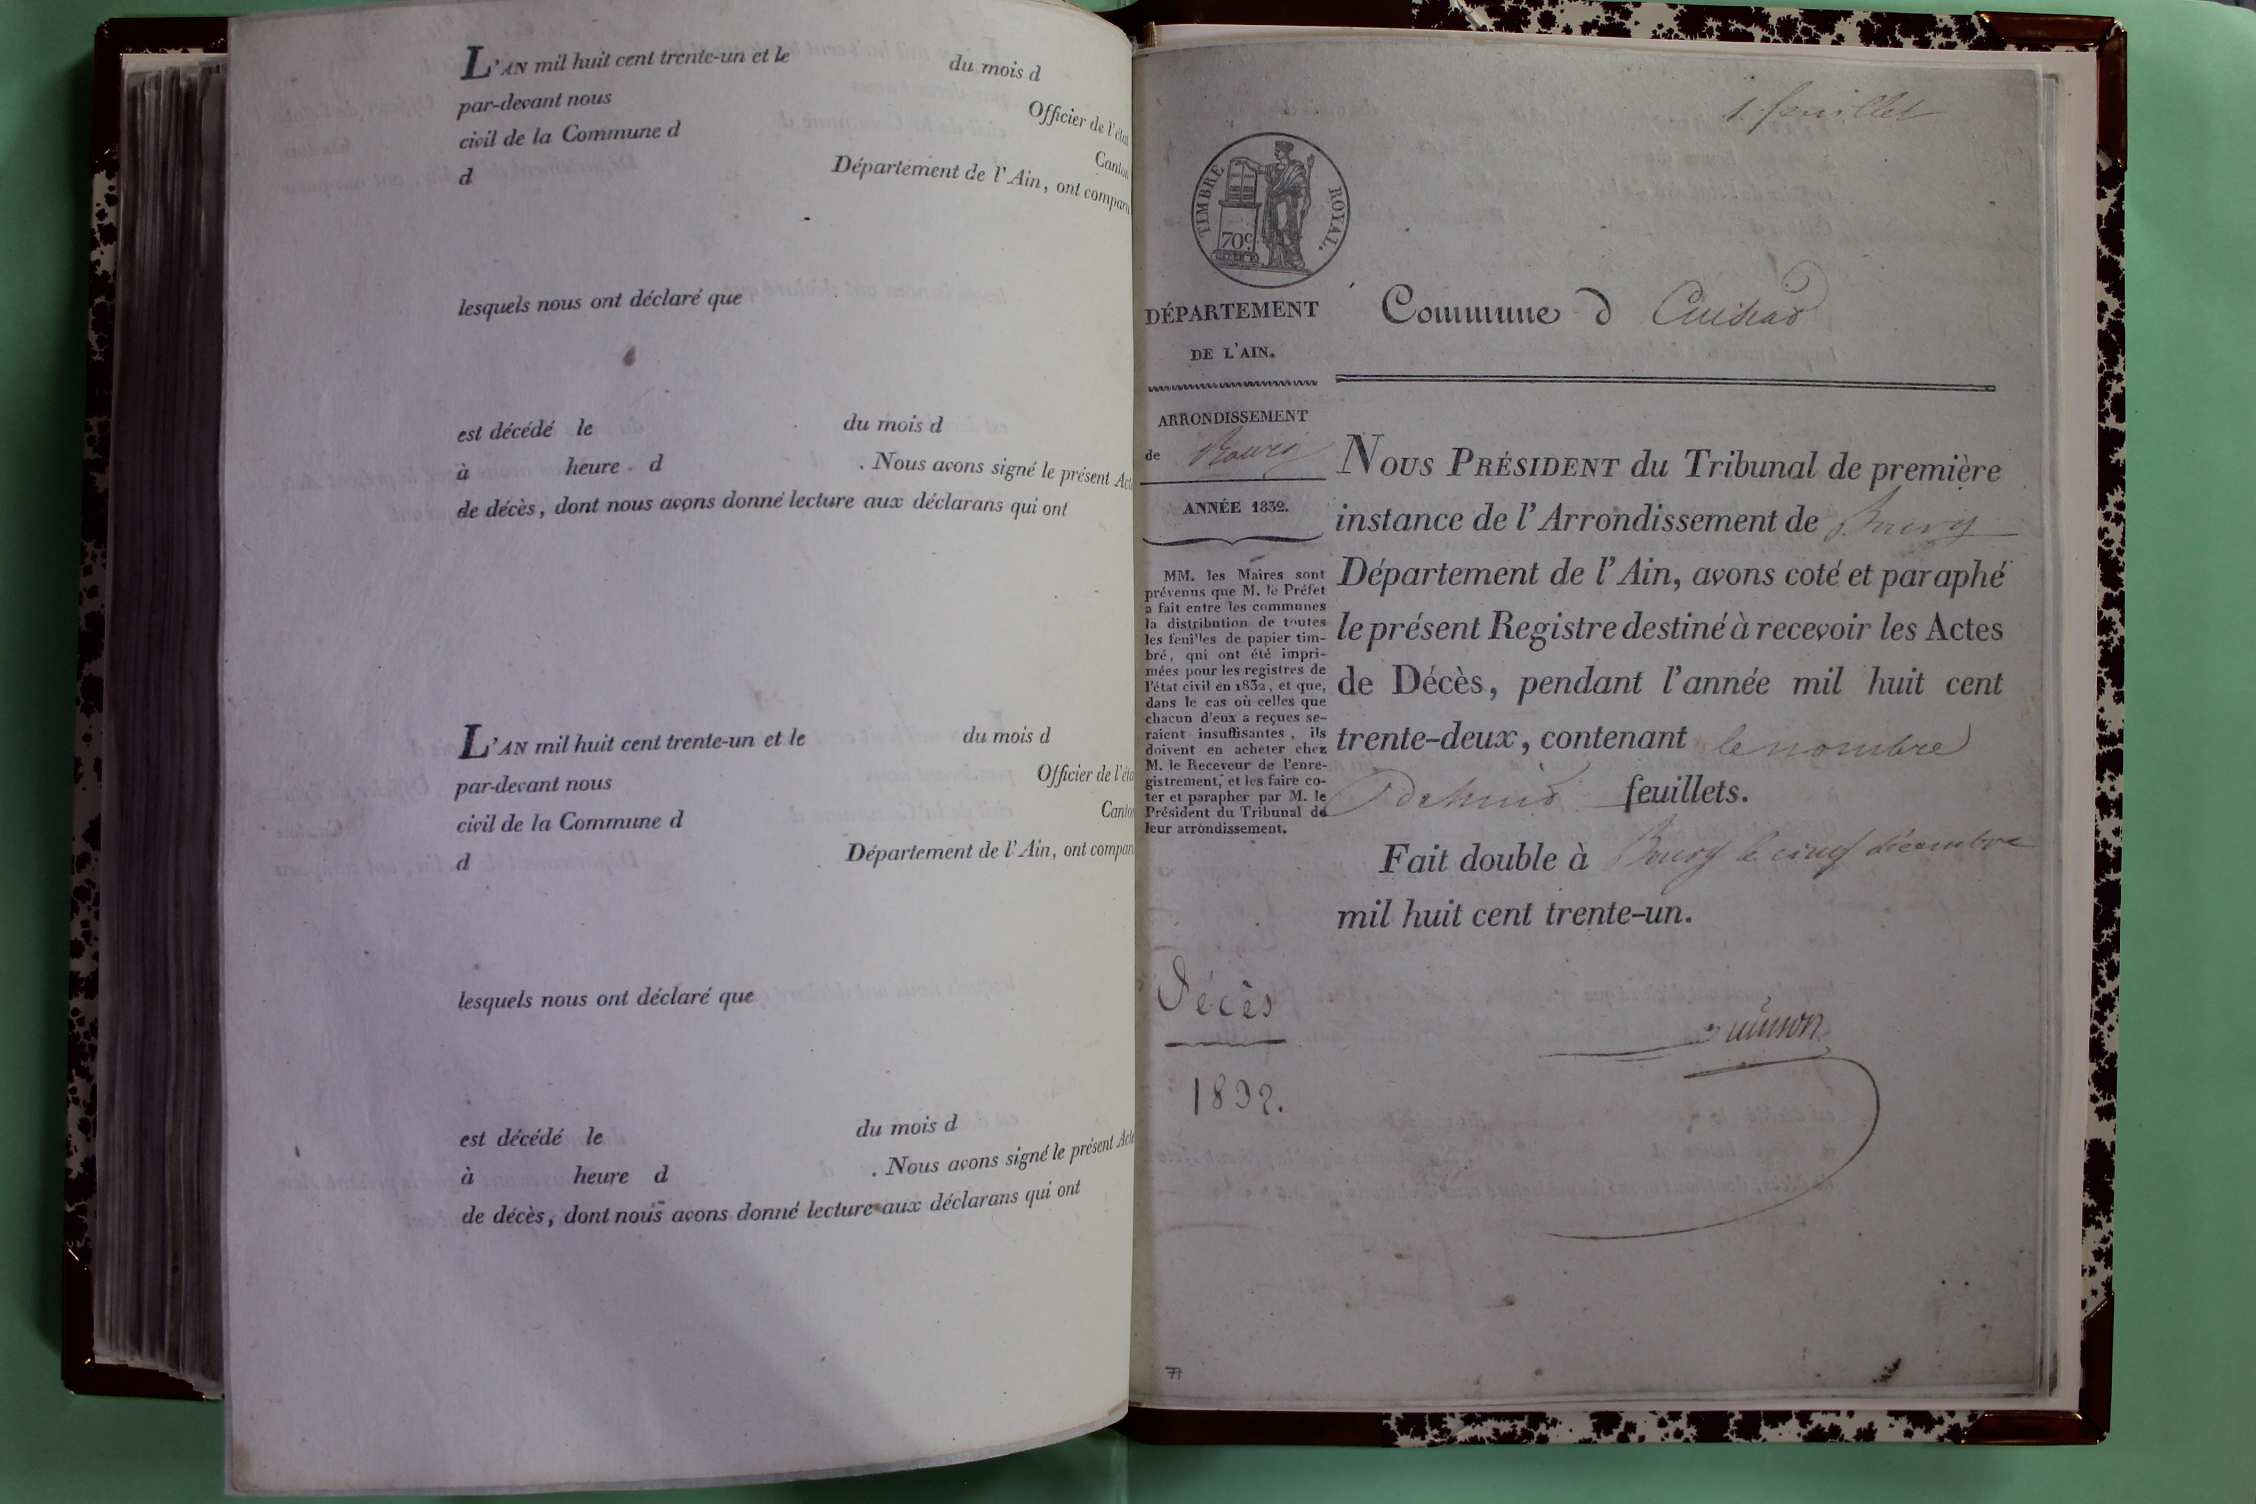 L'AN mil huit cent trente-un et le du mois d
par-devant nous Officier de l'état
civil de la Commune d Canton
d Département de l'Ain, ont comparu
lesquels nous ont déclaré que
est décédé le du mois d
à heure d . Nous avons signé le présent Acte
de décès, dont nous avons donné lecture aux déclarans qui ont
L'AN mil huit cent trente-un et le du mois d
par-devant nous Officier de l'éta
civil de la Commune d Canton
d Département de l'Ain, ont compar
lesquels nous ont déclaré que
est décédé le du mois d
à heure d . Nous avons signé le présent Acte
de décès, dont nous avons donné lecture aux déclarans qui ont
1. feuillet
TIMBRE ROYAL.
70c
DÉPARTEMENT
DE L'AIN.
ARRONDISSEMENT
de Bourg
ANNÉE 1832.
MM. les Maires sont
prévenus que M. le Préfet
a fait entre les communes
la distribution de toutes
les feuilles de papier tim-
bré, qui ont été impri-
mées pour les registres de
l'état civil en 1832, et que,
dans le cas où celles que
chacun d'eux a reçues se-
raient insuffisantes, ils
doivent en acheter chez
M. le Receveur de l'enre-
gistrement, et les faire co-
ter et parapher par M. le
Président du Tribunal de
leur arrondissement.
Décès
1832.
77
Commune d
NOUS PRÉSIDENT du Tribunal de première
instance de l'Arrondissement de Bourg
Département de l'Ain, avons coté et paraphé
le présent Registre destiné à recevoir les Actes
de Décès, pendant l'année mil huit cent
trente-deux, contenant le nombre
feuillets.
Fait double à Bourg le cinq décembre
mil huit cent trente-un.